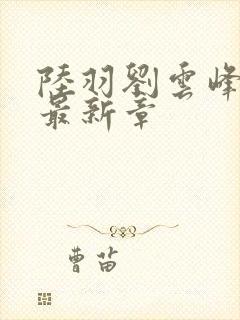 陸羽劉雲峰
最新章
曹苗